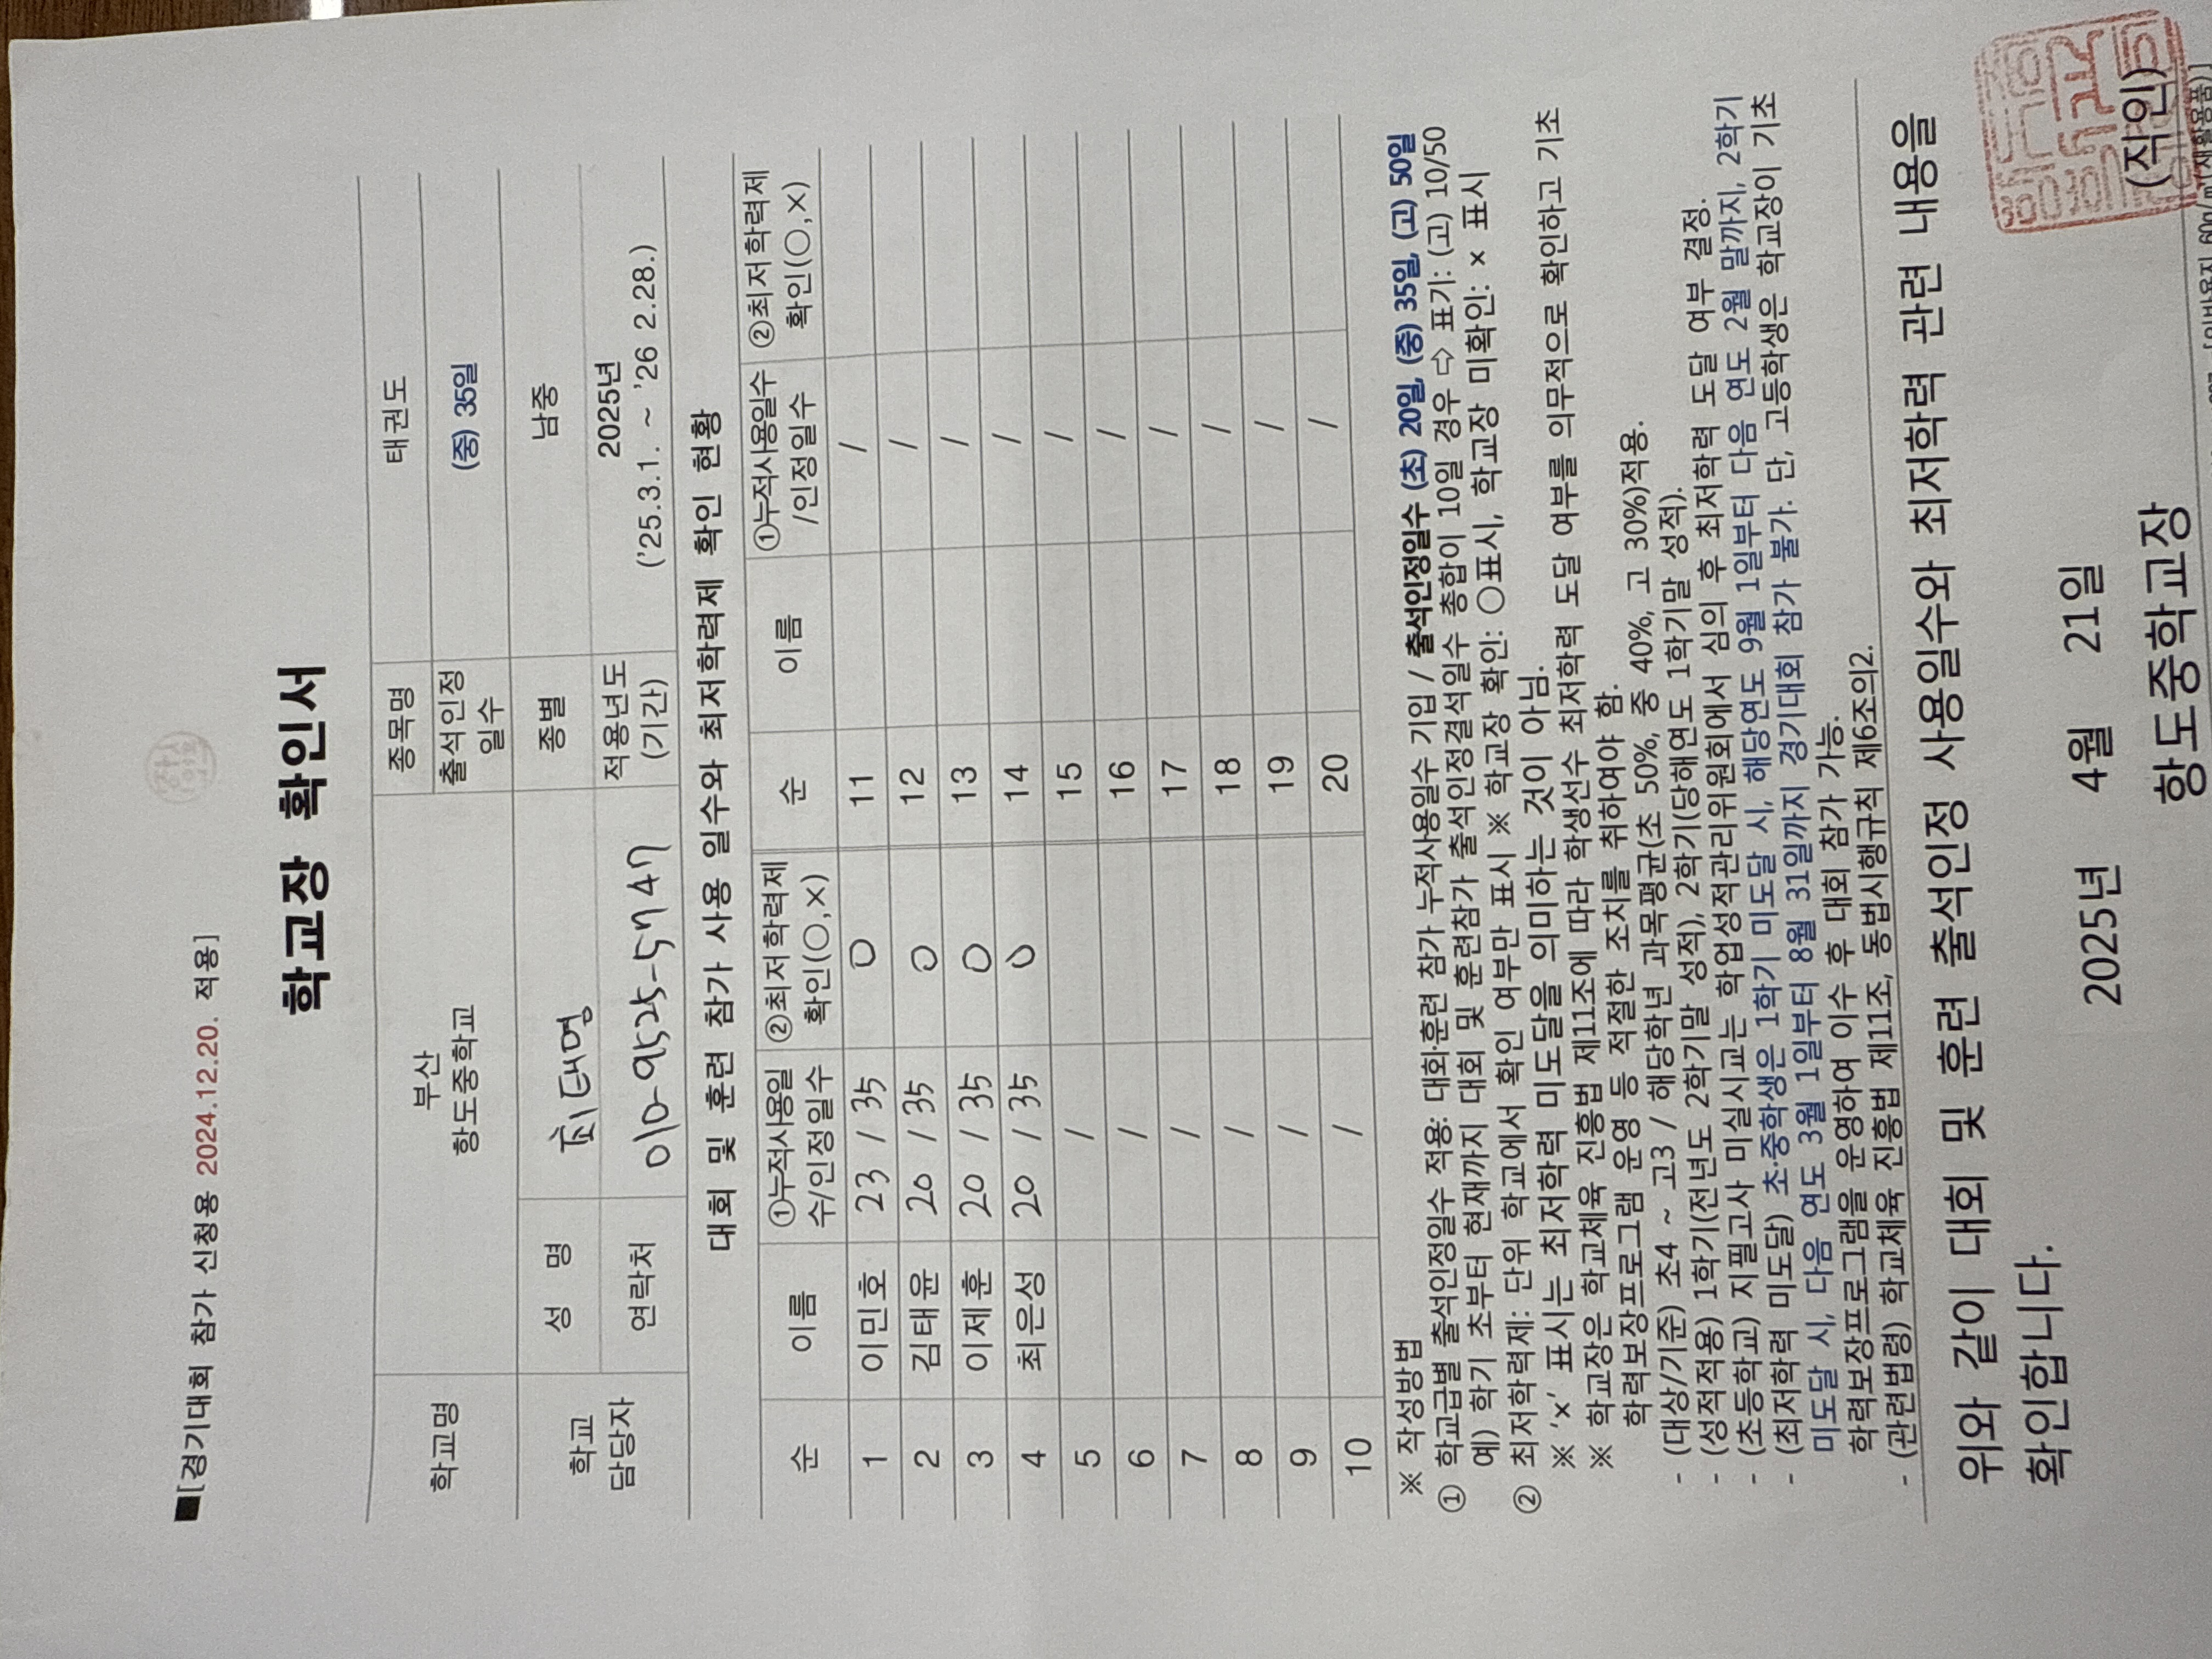 ■[경기대회 참가 신청용 2024.12.20. 적용]
학교장 확인서
학교명 부산 항도중학교 종목명 태권도
출석인정 일수 (중) 35일
학교 담당자 성 명 최대영 종별 남중
연락처 010-9525-5747 적용년도 (기간) 2025년 ('25.3.1. ~ '26 2.28.)
대회 및 훈련 참가 사용 일수와 최저학력제 확인 현황
순 이름 ①누적사용일수/인정일수 ②최저학력제 확인(○,×) 순 이름 ①누적사용일수/인정일수 ②최저학력제 확인(○,×)
1 이민호 23 / 35 ○ 11 /
2 김태윤 20 / 35 ○ 12 /
3 이제훈 20 / 35 ○ 13 /
4 최은성 20 / 35 ○ 14 /
5 / 15 /
6 / 16 /
7 / 17 /
8 / 18 /
9 / 19 /
10 / 20 /
※ 작성방법
① 학교급별 출석인정일수 적용: 대회·훈련 참가 누적사용일수 기입 / 출석인정일수 (초) 20일, (중) 35일, (고) 50일
예) 학기 초부터 현재까지 대회 및 훈련참가 출석인정결석일수 총합이 10일 경우 ⇨ 표기: (고) 10/50
② 최저학력제: 단위 학교에서 확인 여부만 표시 ※ 학교장 확인: ○표시, 학교장 미확인: × 표시
※ 'x' 표시는 최저학력 미도달을 의미하는 것이 아님.
※ 학교장은 학교체육 진흥법 제11조에 따라 학생선수 최저학력 도달 여부를 의무적으로 확인하고 기초
학력보장프로그램 운영 등 적절한 조치를 취하여야 함.
- (대상/기준) 초4 ~ 고3 / 해당학년 과목평균(초 50%, 중 40%, 고 30%)적용.
- (성적적용) 1학기(전년도 2학기말 성적), 2학기(당해연도 1학기말 성적).
- (초등학교) 지필고사 미실시교는 학업성적관리위원회에서 심의 후 최저학력 도달 여부 결정.
- (최저학력 미도달) 초·중학생은 1학기 미도달 시, 해당연도 9월 1일부터 다음 연도 2월 말까지, 2학기
미도달 시, 다음 연도 3월 1일부터 8월 31일까지 경기대회 참가 불가. 단, 고등학생은 학교장이 기초
학력보장프로그램을 운영하여 이수 후 대회 참가 가능.
- (관련법령) 학교체육 진흥법 제11조, 동법시행규칙 제6조의2.
위와 같이 대회 및 훈련 출석인정 사용일수와 최저학력 관련 내용을
확인합니다.
2025년 4월 21일
항도중학교장 (직인)